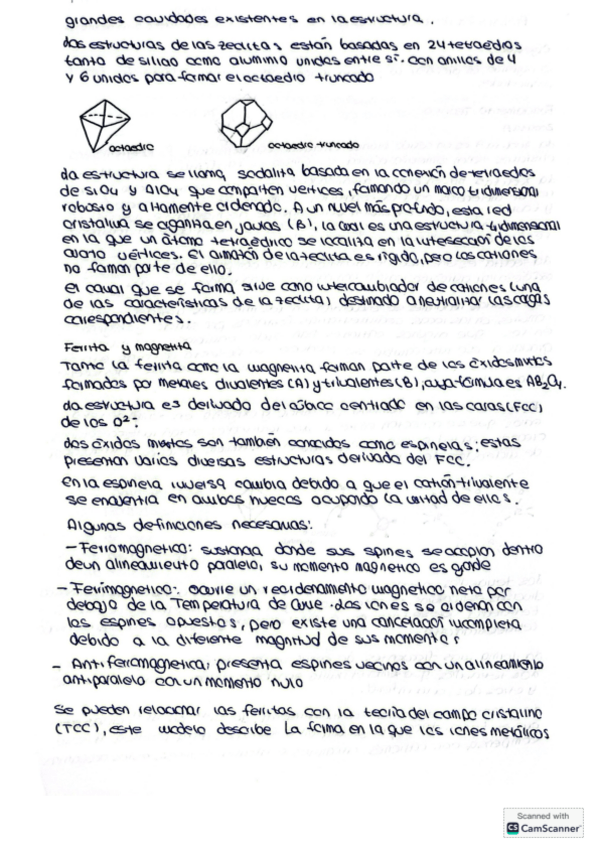 grandes cavidades existentes en la estructura.
Las estructuras de las zeolitas están basadas en 24 tetraedros
tanto de silicio como aluminio unidos entre sí. Con anillos de 4
y 6 unidos para formar el octaedro truncado
octaedro
octaedro truncado
La estructura se llama sodalita basada en la conexión de tetraedros
de SiO4 y AlO4 que comparten vertices, formando un marco tridimensional
robusto y altamente ordenado. A un nivel más profundo, esta red
cristalina se organiza en jaulas (β), la cual es una estructura tridimensional
en la que un átomo tetraédrico se localiza en la intersección de los
cuatro vértices. El armazón de la zeolita es rígido, pero los cationes
no forman parte de ello.
El canal que se forma sirve como intercambiador de cationes (una
de las características de la zeolita) destinado a neutralizar las cargas
correspondientes.
Ferrita y magnetita
Tanto la ferrita como la magnetita forman parte de los óxidos mixtos
formados por metales divalentes (A) y trivalentes (B), cuya fórmula es AB2O4.
La estructura es derivada del cúbico centrado en las caras (FCC)
de los O2-:
Los óxidos mixtos son también conocidos como espinelas; estas
presentan varias diversas estructuras derivada del FCC.
En la espinela inversa cambia debido a que el catión trivalente
se encuentra en ambos huecos ocupando la mitad de ellos.
Algunas definiciones necesarias:
- Ferromagnético: sustancia donde sus espines se acoplan dentro
de un alineamiento paralelo, su momento magnético es grande
- Ferrimagnético: ocurre un reordenamiento magnético neto por
debajo de la Temperatura de Curie. Los iones se ordenan con
los espines opuestos, pero existe una cancelación incompleta
debido a la diferente magnitud de sus momentos
- Antiferromagnético; presenta espines vecinos con un alineamiento
antiparalelo con un momento nulo
Se pueden relacionar las ferritas con la teoría del campo cristalino
(TCC), este modelo describe la forma en la que los iones metálicos
Scanned with
CS CamScanner